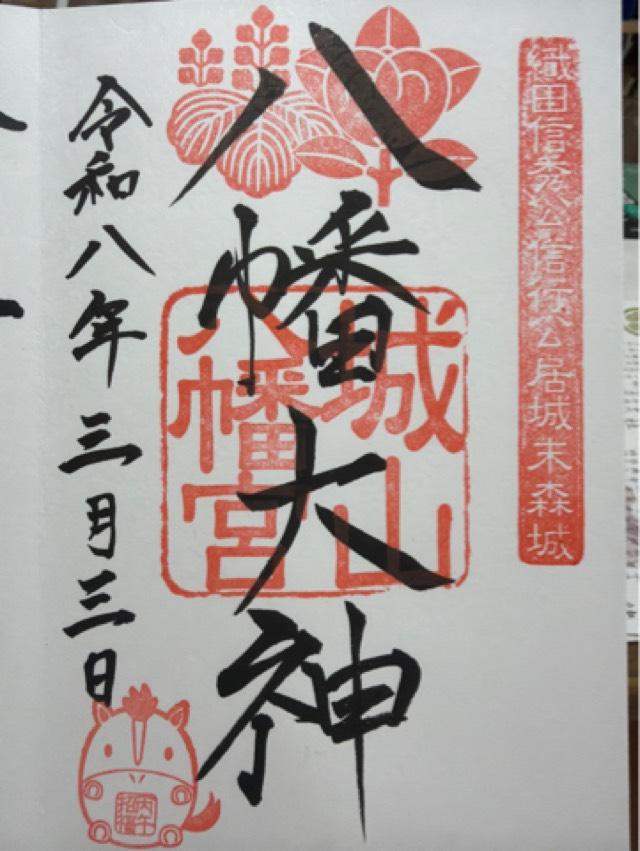 織田信秀公信行公居城末森城
八幡大神
城山
八幡宮
令和八年三月三日
丙午
招福